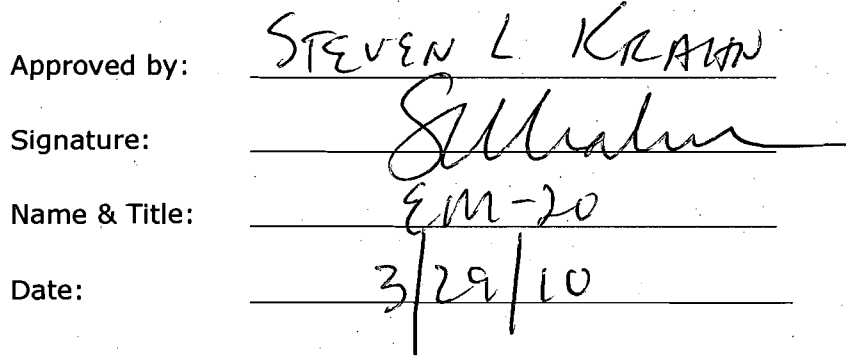 Approved by: STEVEN L KRAHN
Signature: SLKrahn
Name & Title: EM-20
Date: 3/29/10